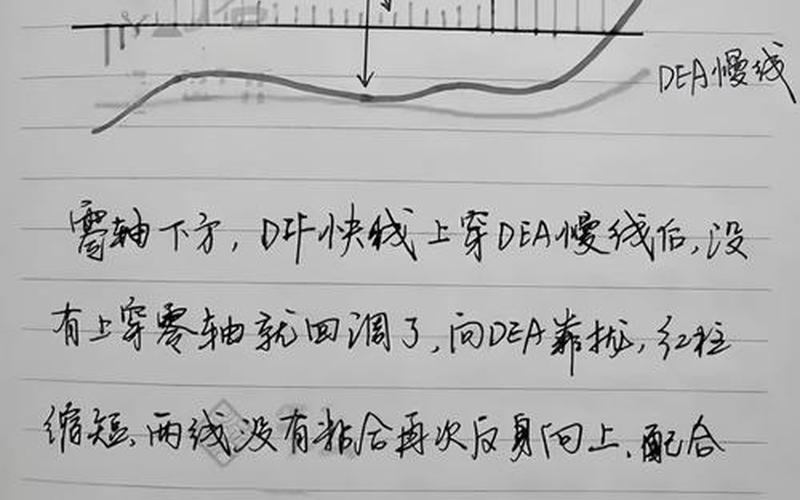 DEA慢线
零轴下方,DIF快线上穿DEA慢线后,没
有上穿零轴就回调了,向DEA靠拢,红柱
缩短,两线没有粘合再次反身向上,配合